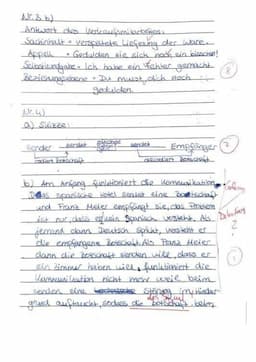 Nr. 3. b)
Antwort des Verkaufsmitarbeiters:
Sachinhalt • verspätete Lieferung der Ware.
Appell • Gedulden sie sich noch ein bisschen!
Selbstkundgabe • Ich habe ein Fehler gemacht
Beziehungsebene • Du musst dich noch
gedulden.
8
Nr. 4)
a) Skizze:
Sender sendet sendet Empfänger
codiert Botschaft decodiert Botschaft
7
b) Am Anfang funktioniert die Kommunikation
Das spanische Hotel sendet eine Botschaft
und Franz Meier empfängt sie, das Problem
ist nur, dass er kein Spanisch versteht. Als
jemand dann Deutsch spricht, versteht er
die empfangene Botschaft. Als Franz Meier
dann die Botschaft senden will, dass er
ein Zimmer haben will, funktioniert die
Kommunikation nicht mehr weil beim
senden eine Störung
auftaucht, sodass die Botschaft